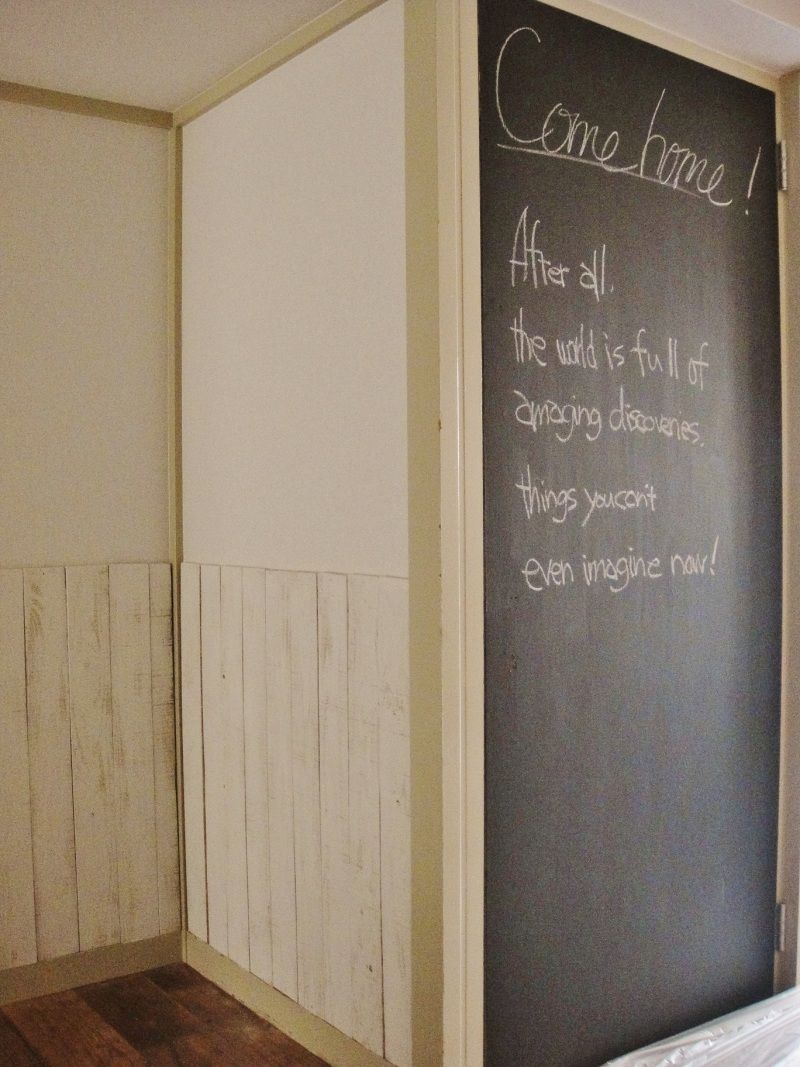 Come home!
After all,
the world is full of
amazing discoveries.
things you can't
even imagine now!